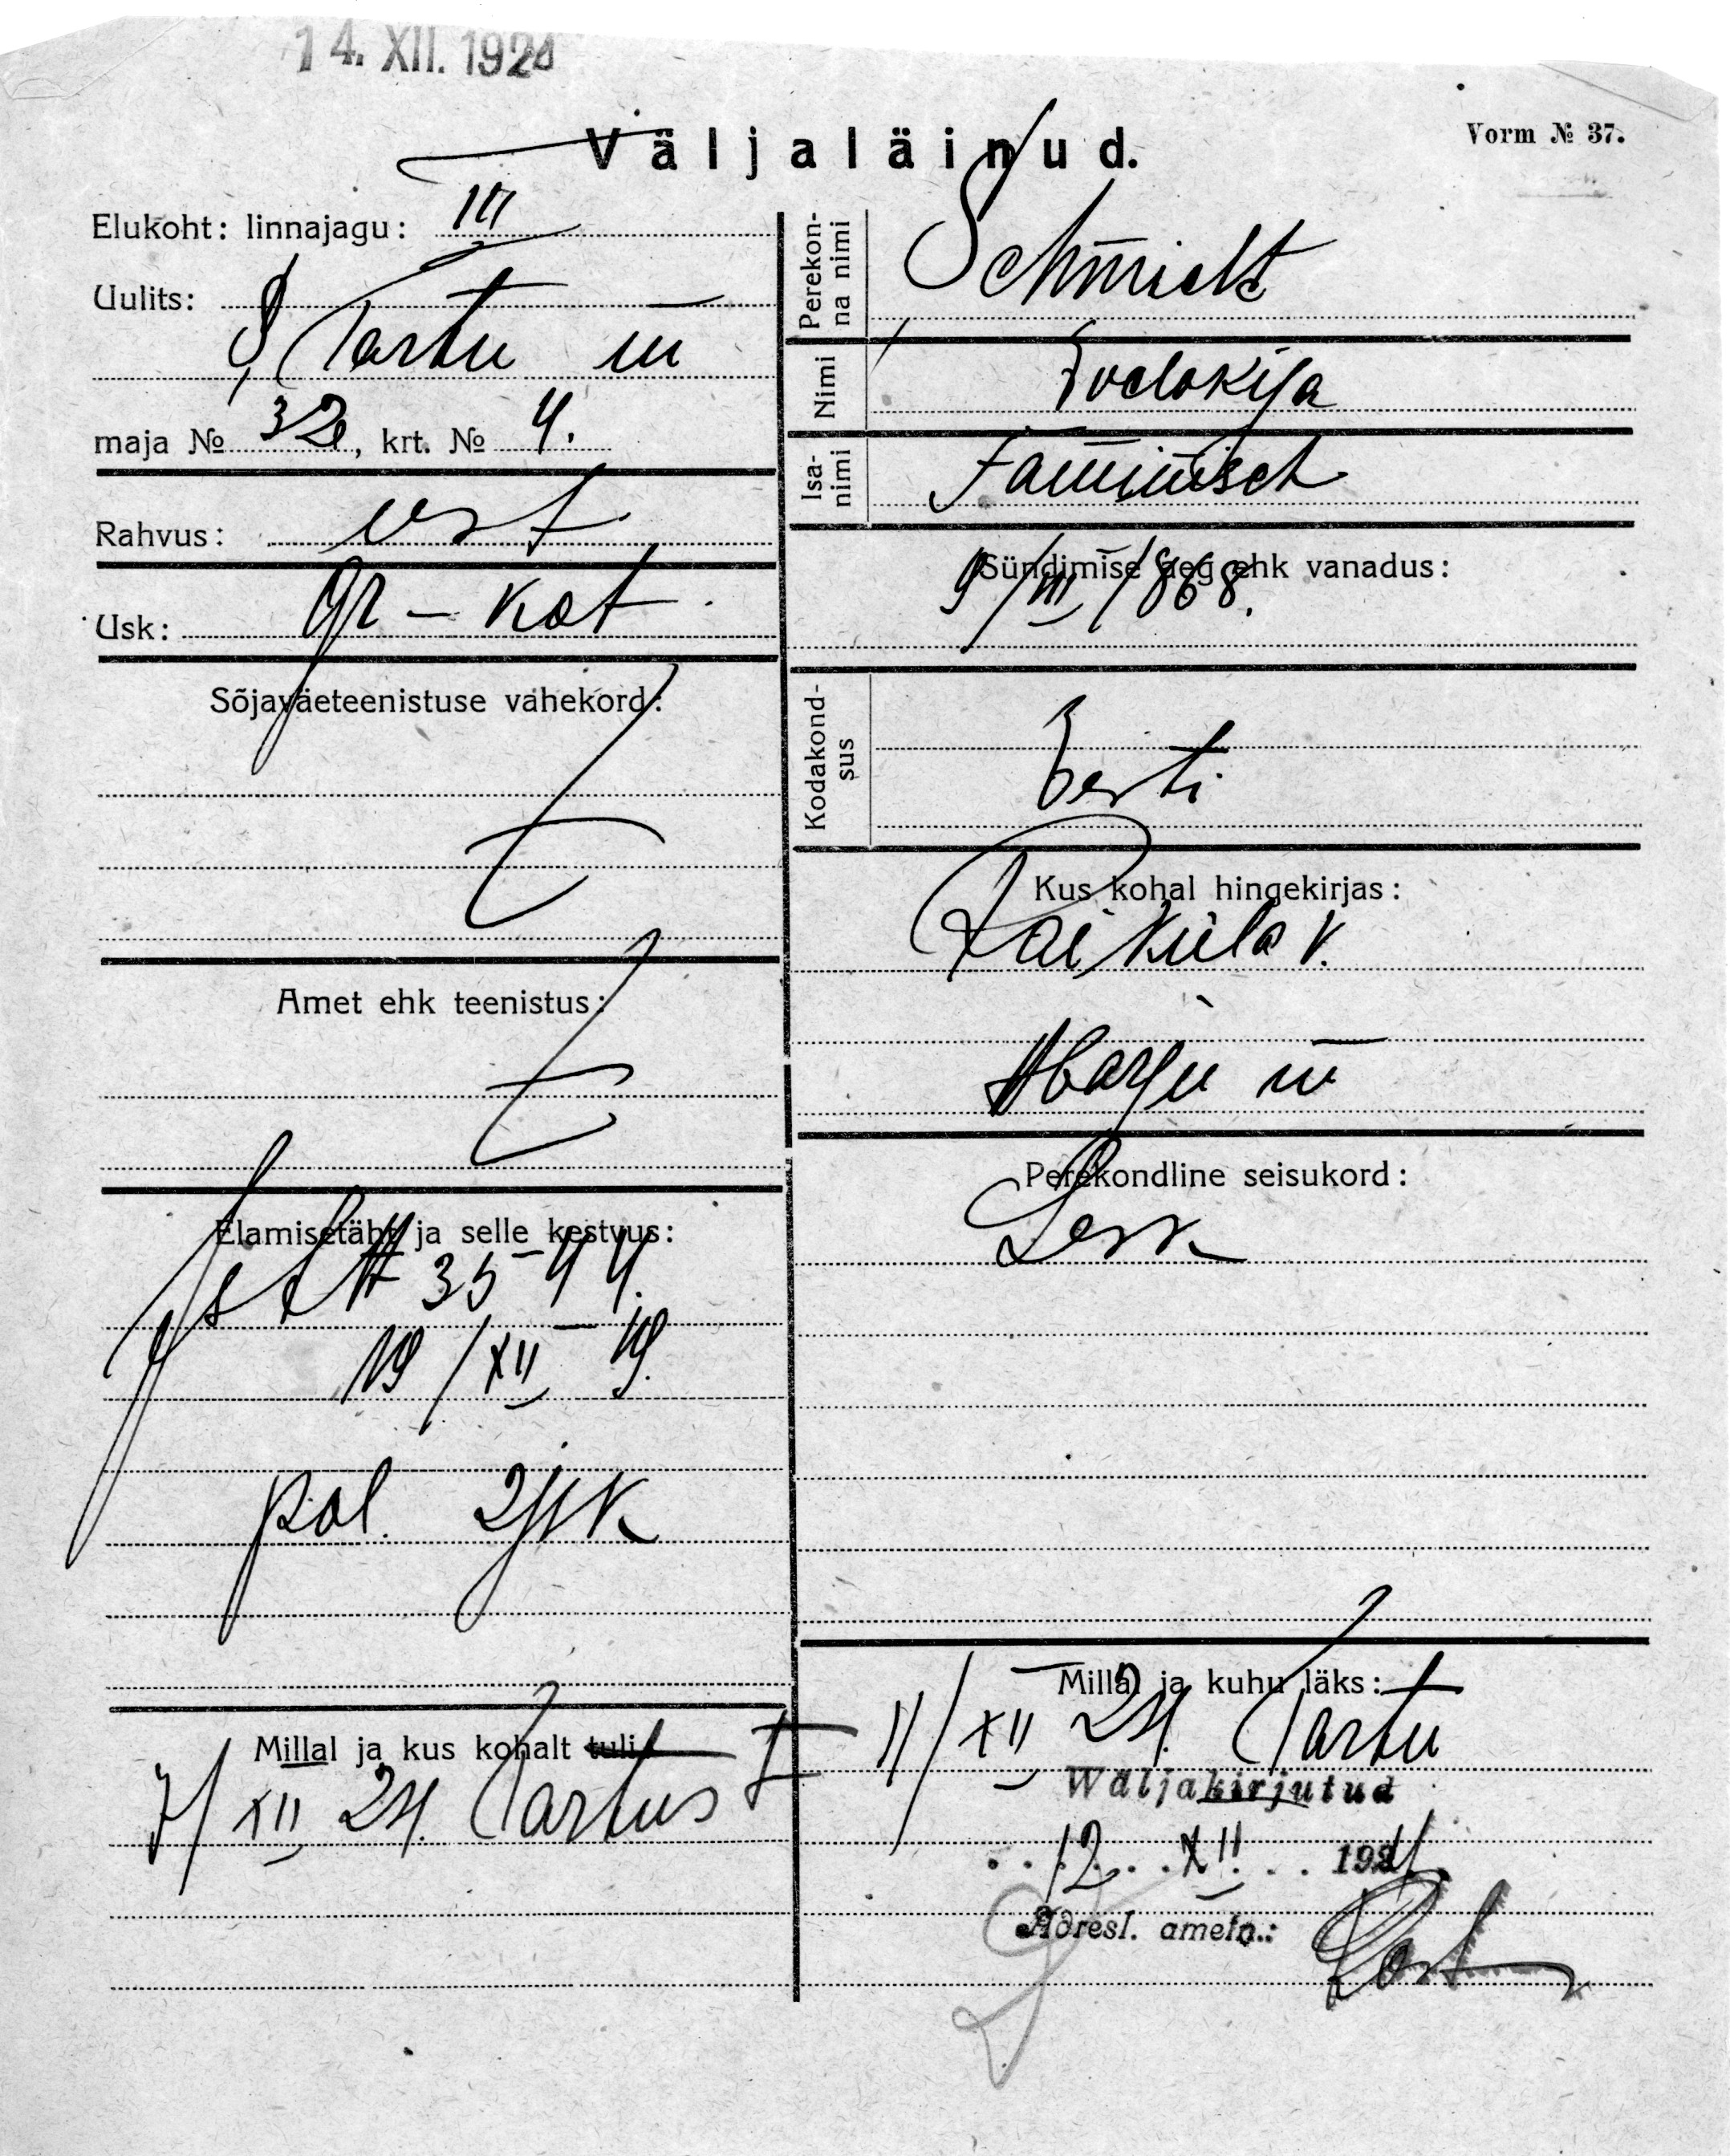 14. XII. 1924
Väljaläinud.
Vorm № 37.
Elukoht: linnajagu: III
Uulits:
S. Tartu m
maja № 32, krt. № 4.
Rahvus: est
Usk: gr-kat
Sõjaväeteenistuse vahekord:
Amet ehk teenistus:
Elamisetäht ja selle kestvus:
№ 3544.
19/XII 19.
pol. 2 jsk
Millal ja kus kohalt tuli
7/XII 24. Tartus
Perekonna nimi
Schmidt
Nimi
Evdokija
Isanimi
Sündimise aeg ehk vanadus:
9/III 1868.
Kodakondsus
Eesti
Kus kohal hingekirjas:
Raiküla v.
Harju m
Perekondline seisukord:
Lesk
Millal ja kuhu läks:
11/XII 24. Tartu
Wäljakirjutud
12. XII. 1924.
Adresl. ametn.: